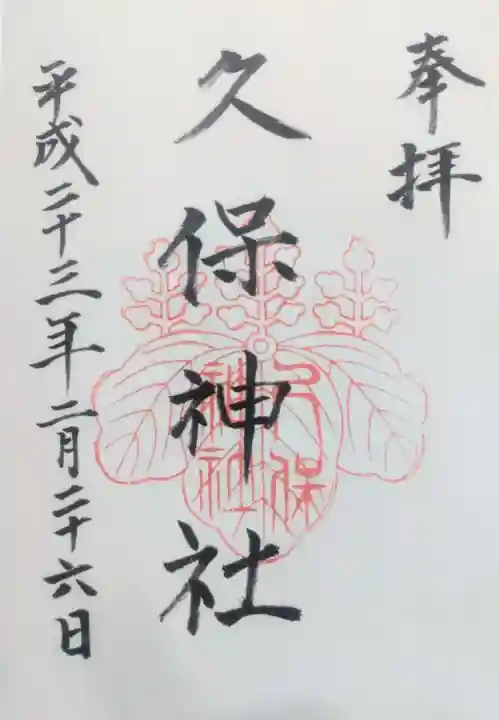 奉拝
久保神社
久保
神社
平成二十三年二月二十六日